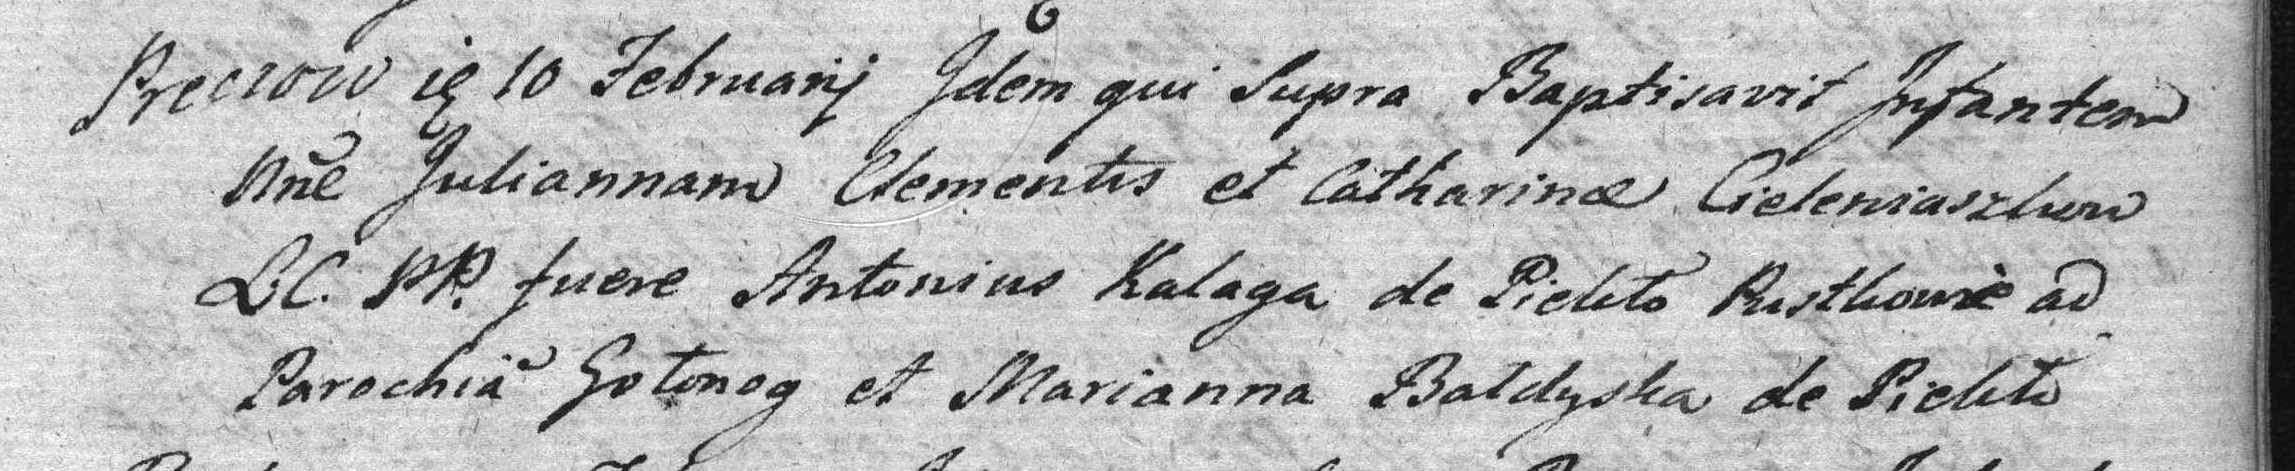 Preczow ię 10 Februarij Idem qui Supra Baptisavit Infantem
Nne Juliannam Clementis et Catharinæ Cieleniaszkow
LC. PP. fuere Antonius Kalaga de Piekło ad
Parochiã Gołonog et Marianna Bałdyska de Piekło